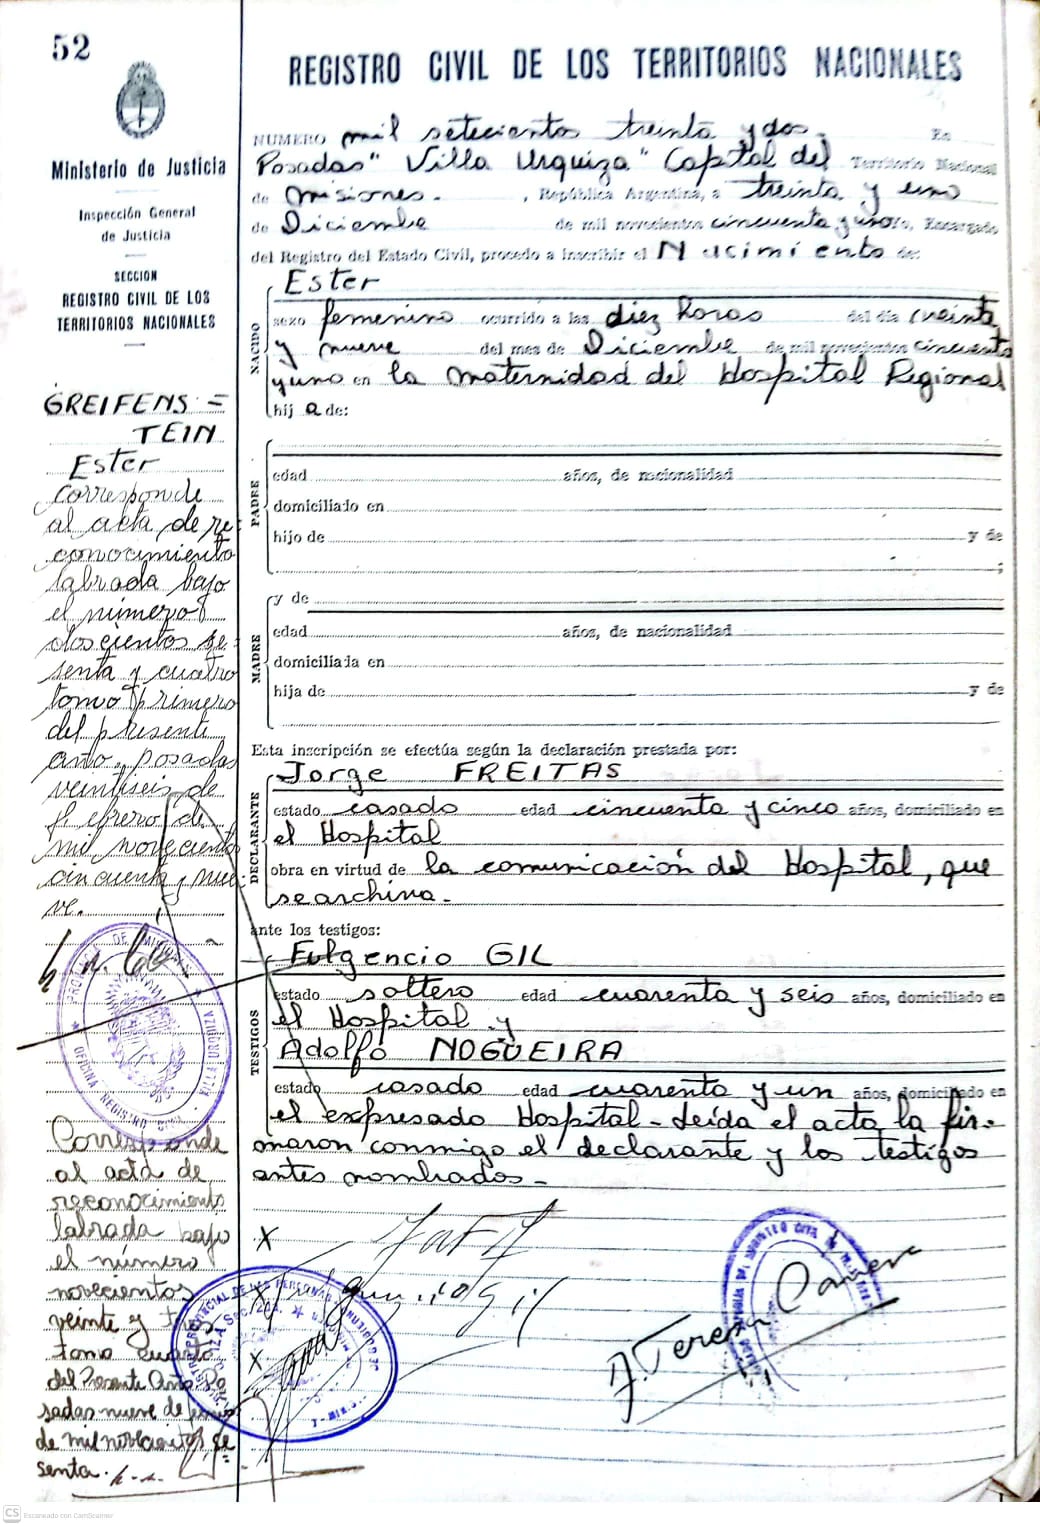 52
REGISTRO CIVIL DE LOS TERRITORIOS NACIONALES
Ministerio de Justicia
Inspección General
de Justicia
SECCION
REGISTRO CIVIL DE LOS
TERRITORIOS NACIONALES
NUMERO mil setecientos treinta y dos. En
Posadas "Villa Urquiza" Capital del Territorio Nacional
de Misiones. , República Argentina, a treinta y uno
de Diciembre de mil novecientos cincuenta y uno Yo, Encargado
del Registro del Estado Civil, procedo a inscribir el Nacimiento de:
NACIDO
Ester
sexo femenino ocurrido a las diez horas del día veinte
y nueve del mes de Diciembre de mil novecientos cincuenta
y uno en la maternidad del Hospital Regional
hij a de:
PADRE
edad años, de nacionalidad
domiciliado en
hijo de y de
;
MADRE
y de
edad años, de nacionalidad
domiciliada en
hija de y de
Esta inscripción se efectúa según la declaración prestada por:
DECLARANTE
Jorge FREITAS
estado casado edad cincuenta y cinco años, domiciliado en
el Hospital
obra en virtud de la comunicación del Hospital, que
se archiva.
ante los testigos:
TESTIGOS
Fulgencio GIL
estado soltero edad cuarenta y seis años, domiciliado en
el Hospital y
Adolfo NOGUEIRA
estado casado edad cuarenta y un años, domiciliado en
el expresado Hospital - Leída el acta la fir-
maron conmigo el declarante y los testigos
antes nombrados -
GREIFENS=
TEIN
Ester
Corresponde
al acta de re
conocimiento
labrada bajo
el número
doscientos se-
senta y cuatro
tomo primero
del presente
año, posadas
veintiseis de
febrero de
mil novecientos
cincuenta y nue
ve.
PROVINCIA DE MISIONES
OFICINA REGISTRO CIVIL
VILLA URQUIZA
Corresponde
al acta de
reconocimiento
labrada bajo
el número
novecientos
veinte y tres
tomo cuarto
del Presente Año Po
sadas nueve de
de mil novecientos se
senta.
X
X
X
A. Teresa
CS Escaneado con CamScanner